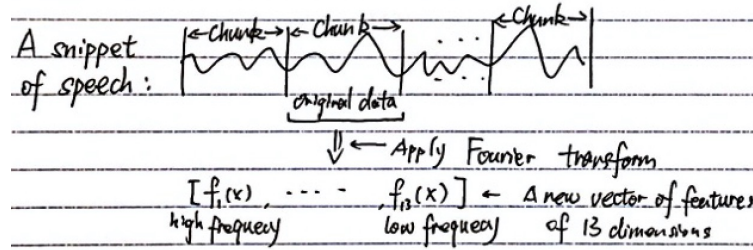 A snippet of speech:
←Chunk→ ← Chunk → ←Chunk→
original data
⇓ ← Apply Fourier transform
[f₁(x) , ····· , f₁₃(x) ] ← A new vector of features of 13 dimensions
high frequecy low frequecy